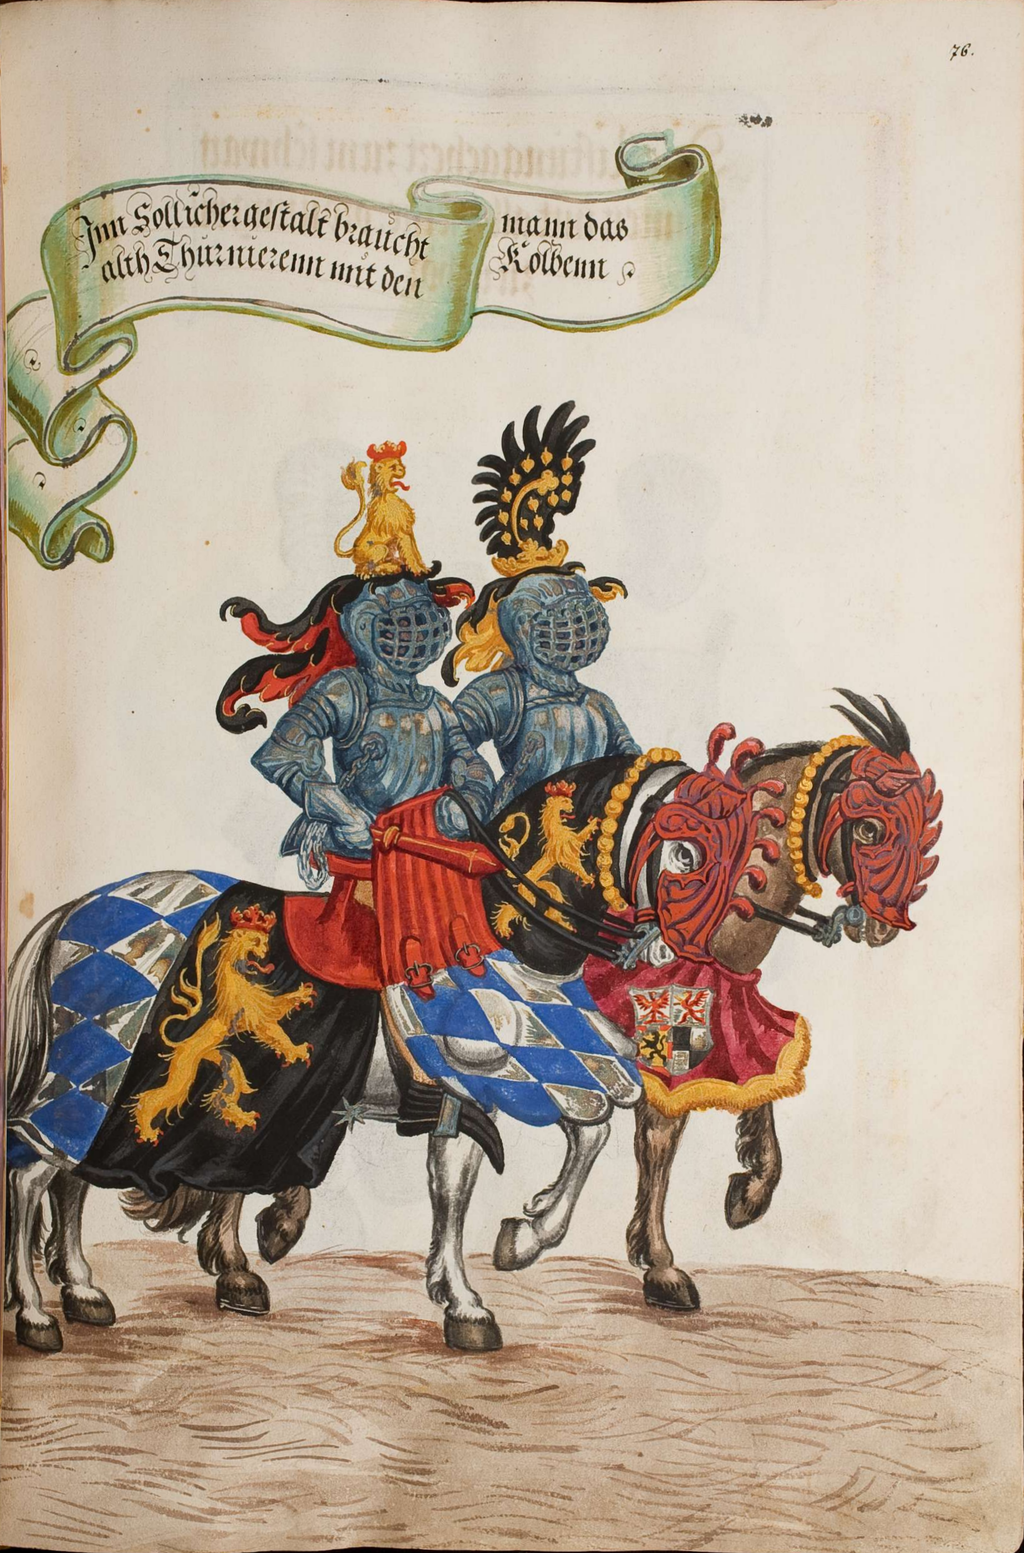 76.
Inn Sollicher gestalt braucht mann das
alth Thurnierenn mit den Kolbenn